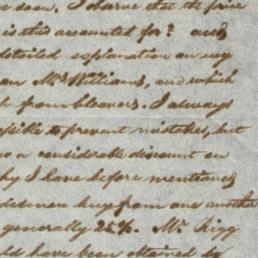 seen. I learne that the price
is this accounted for? and
detailed explanation on my
an Mrs Williams, and which
from cleaners. I always
possible to prevent mistakes, but
so a considerable discount on
why I have before mentioned
desmen buy from one another
generally 25%. Mr. Krigg
ld have been obtained by